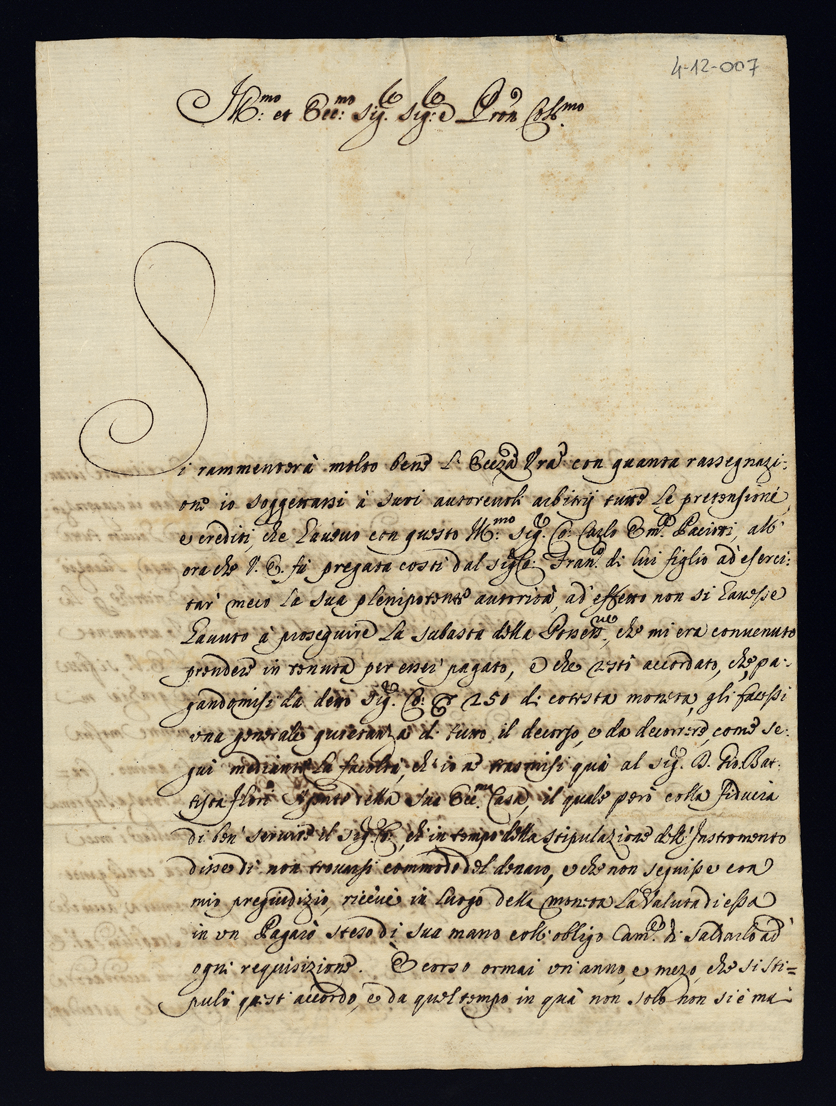 4-12-007
Ill:mo et Ecc:mo Sig.re Sig:re e Pron Col:mo
Si rammenterà molto bene l'Eccza Vra con quanta rassegnazi:
one io soggettassi à suoi autorevoli arbitrij tutte le pretensioni,
e crediti, che havevo con questo Ill:mo Sig.r Co: Carlo Em.l Paciotti, all'
ora che V. E. fù pregata costì dal Sig. Co: Fran.o di lui figlio ad eserci:
tar meco la sua plenipotente autorità, ad effetto non si havesse
havuto à proseguire la subasta della, che mi era convenuto
prendere in tenuta per esser pagato, e che restò accordato, che pa:
gandomisi da detto Sig.r Co: 250 di cotesta moneta, gli facessi
una generale quietanza di tutto il decorso, e da decorrere, come se:
guì mediante la facoltà, ch'io ne trasmisi quà al Sig.r D. Gio: Bat:
tista della sua Ecc.ma Casa, il quale però colla fiducia
di ben servire il Sig.r Co:, ch'in tempo della stipulazione dell'Instromento
disse di non trovarsi commodo del denaro, e che non seguisse con
mio pregiudizio, ricevè in luogo della moneta la valuta di essa
in un Pagarò steso di sua mano coll'obligo Cam.le di saldarlo ad
ogni requisizione. È corso ormai un'anno, e mezo, che si sti=
pulò questo accordo, e da quel tempo in quà non solo non si è mai